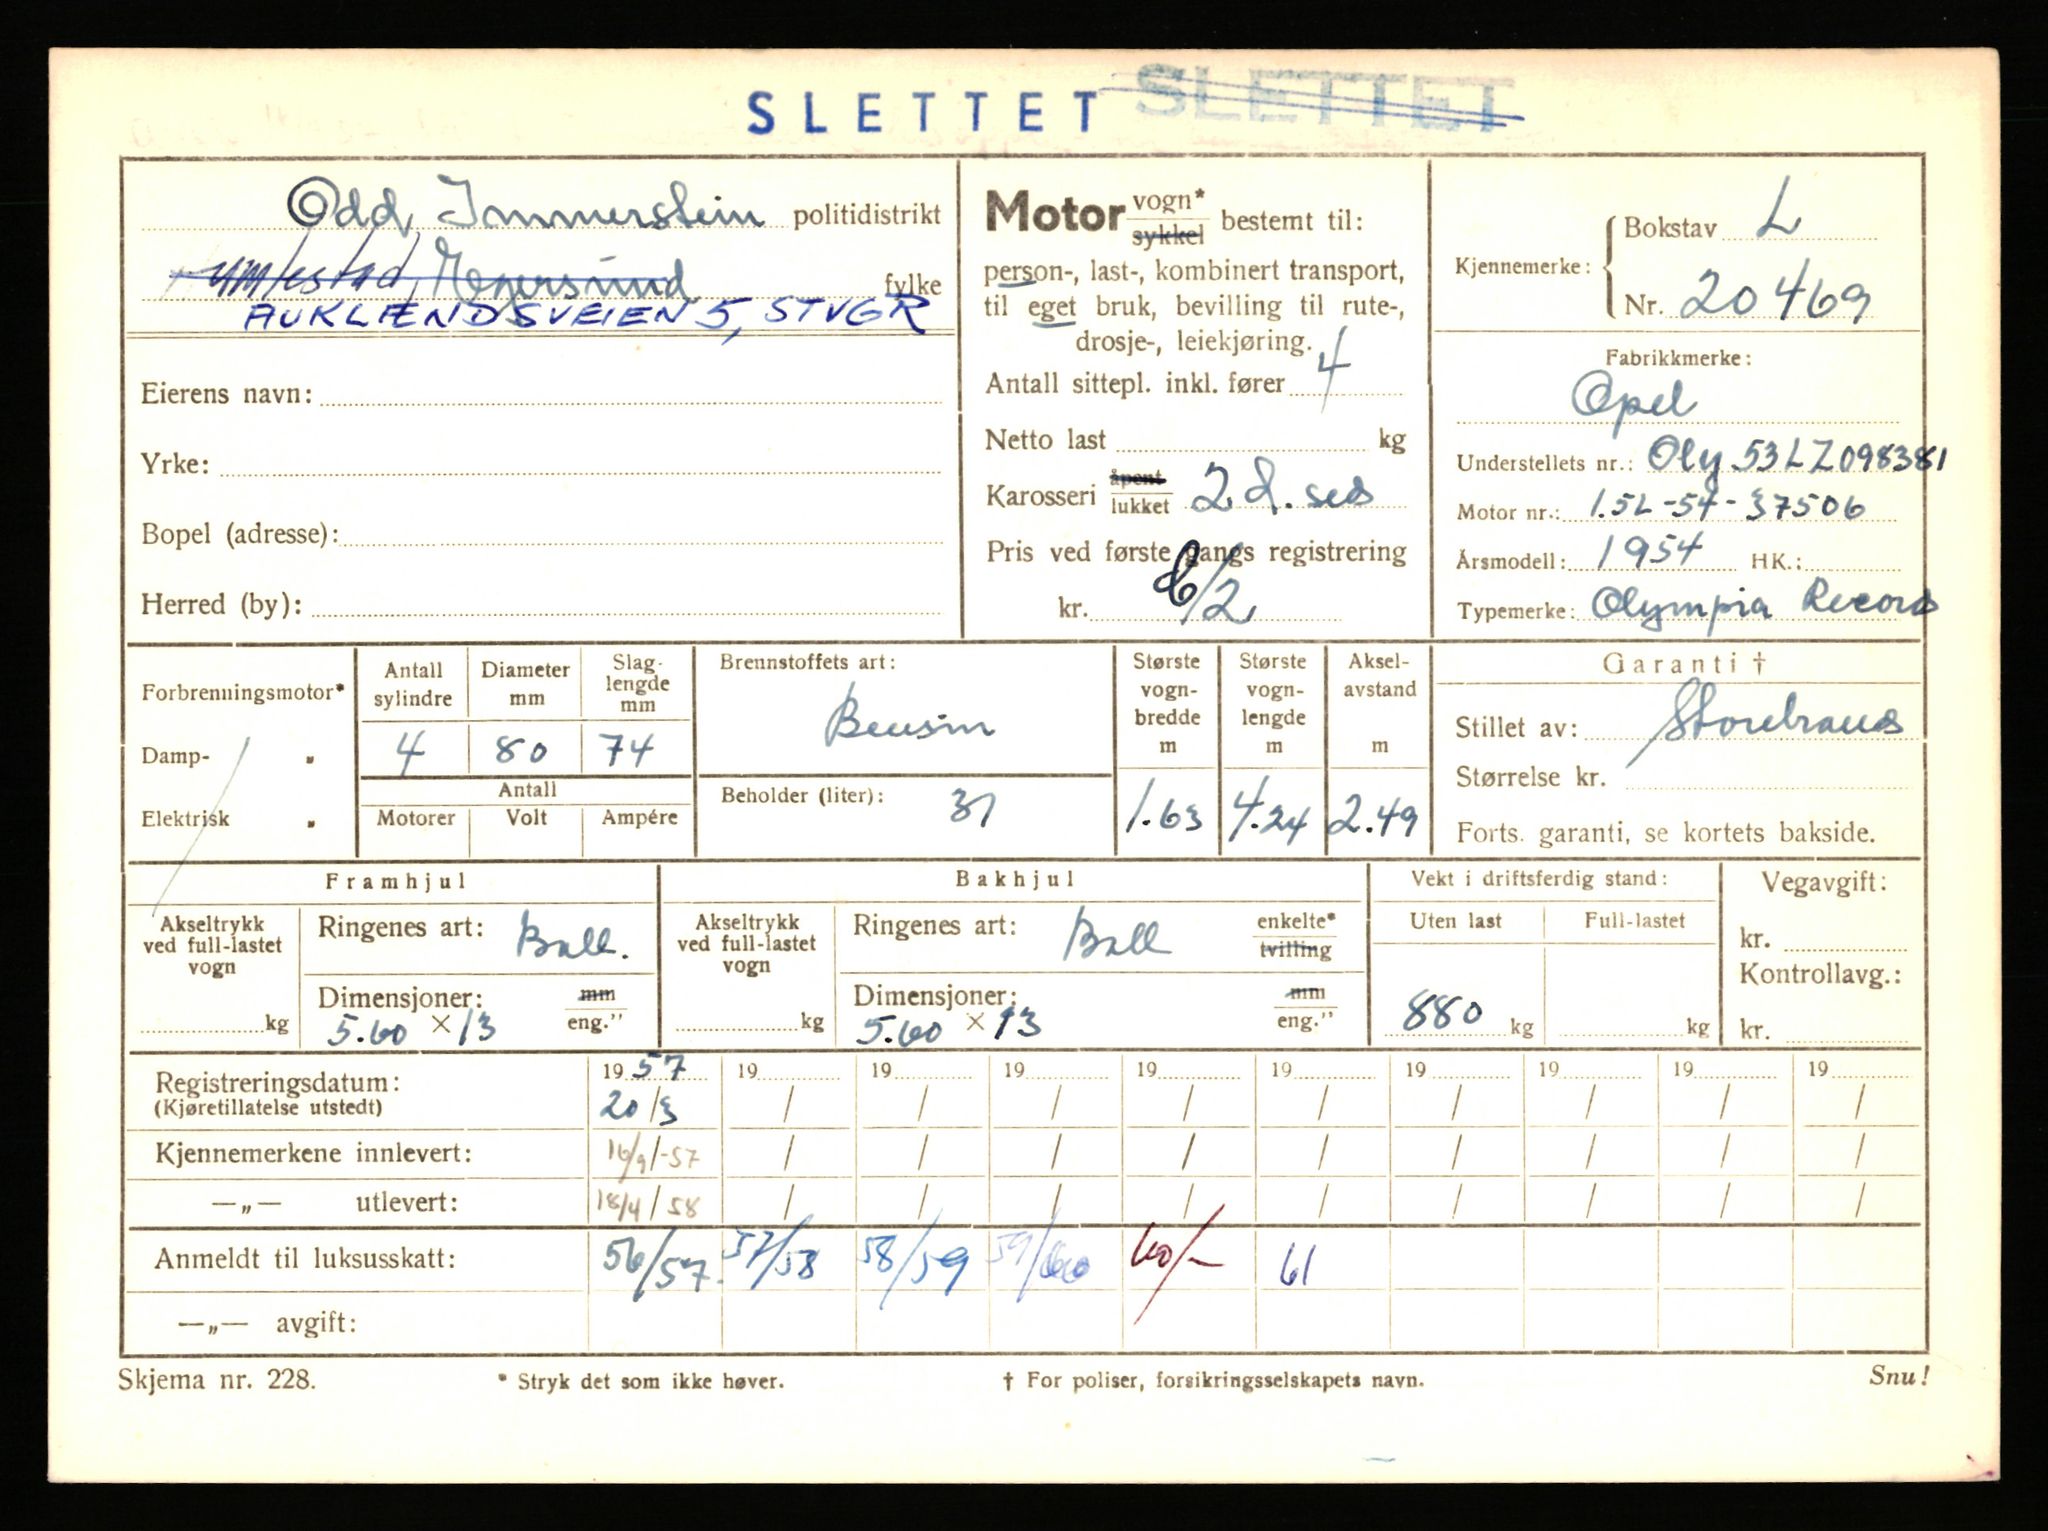 SLETTET SLETTET
Odd Immerstein politidistrikt
Egersund fylke
AUKLÆNDSVEIEN 5, STVGR
Eierens navn:
Yrke:
Bopel (adresse):
Herred (by):
Motor vogn* sykkel bestemt til:
person-, last-, kombinert transport,
til eget bruk, bevilling til rute-,
drosje-, leiekjøring.
Antall sittepl. inkl. fører 4
Netto last kg
Karosseri åpent lukket 2 d. sed
Pris ved første gangs registrering
kr.
Kjennemerke: Bokstav L
Nr. 20469
Fabrikkmerke:
Opel
Understellets nr.: Oly 53LZ098381
Motor nr.: 1.5L-54-37506
Årsmodell: 1954 HK.:
Typemerke: Olympia Record
Forbrenningsmotor*
Damp- "
Elektrisk "
Antall sylindre 4
Diameter mm 80
Slag-lengde mm 74
Antall
Motorer Volt Ampére
Brennstoffets art:
Bensin
Beholder (liter): 31
Største vogn-bredde m 1.63
Største vogn-lengde m 4.24
Aksel-avstand m 2.49
Garanti †
Stillet av: Storebrand
Størrelse kr.
Forts. garanti, se kortets bakside.
Framhjul
Akseltrykk ved full-lastet vogn
kg
Ringenes art: Ball.
Dimensjoner: mm eng."
5.60 × 13
Bakhjul
Akseltrykk ved full-lastet vogn
kg
Ringenes art: Ball enkelte* tvilling
Dimensjoner: mm eng."
5.60 × 13
Vekt i driftsferdig stand:
Uten last Full-lastet
880 kg kg
Vegavgift:
kr.
Kontrollavg.:
kr.
19 57 19 19 19 19 19 19 19 19 19
Registreringsdatum: 20/3 / / / / / / / / /
(Kjøretillatelse utstedt)
Kjennemerkene innlevert: 16/9/-57 / / / / / / / / /
—„— utlevert: 18/4/58 / / / / / / / / /
Anmeldt til luksusskatt: 56/57 57/58 58/59 59/60 60/- 61
—„— avgift:
Skjema nr. 228. * Stryk det som ikke høver. † For poliser, forsikringsselskapets navn. Snu!